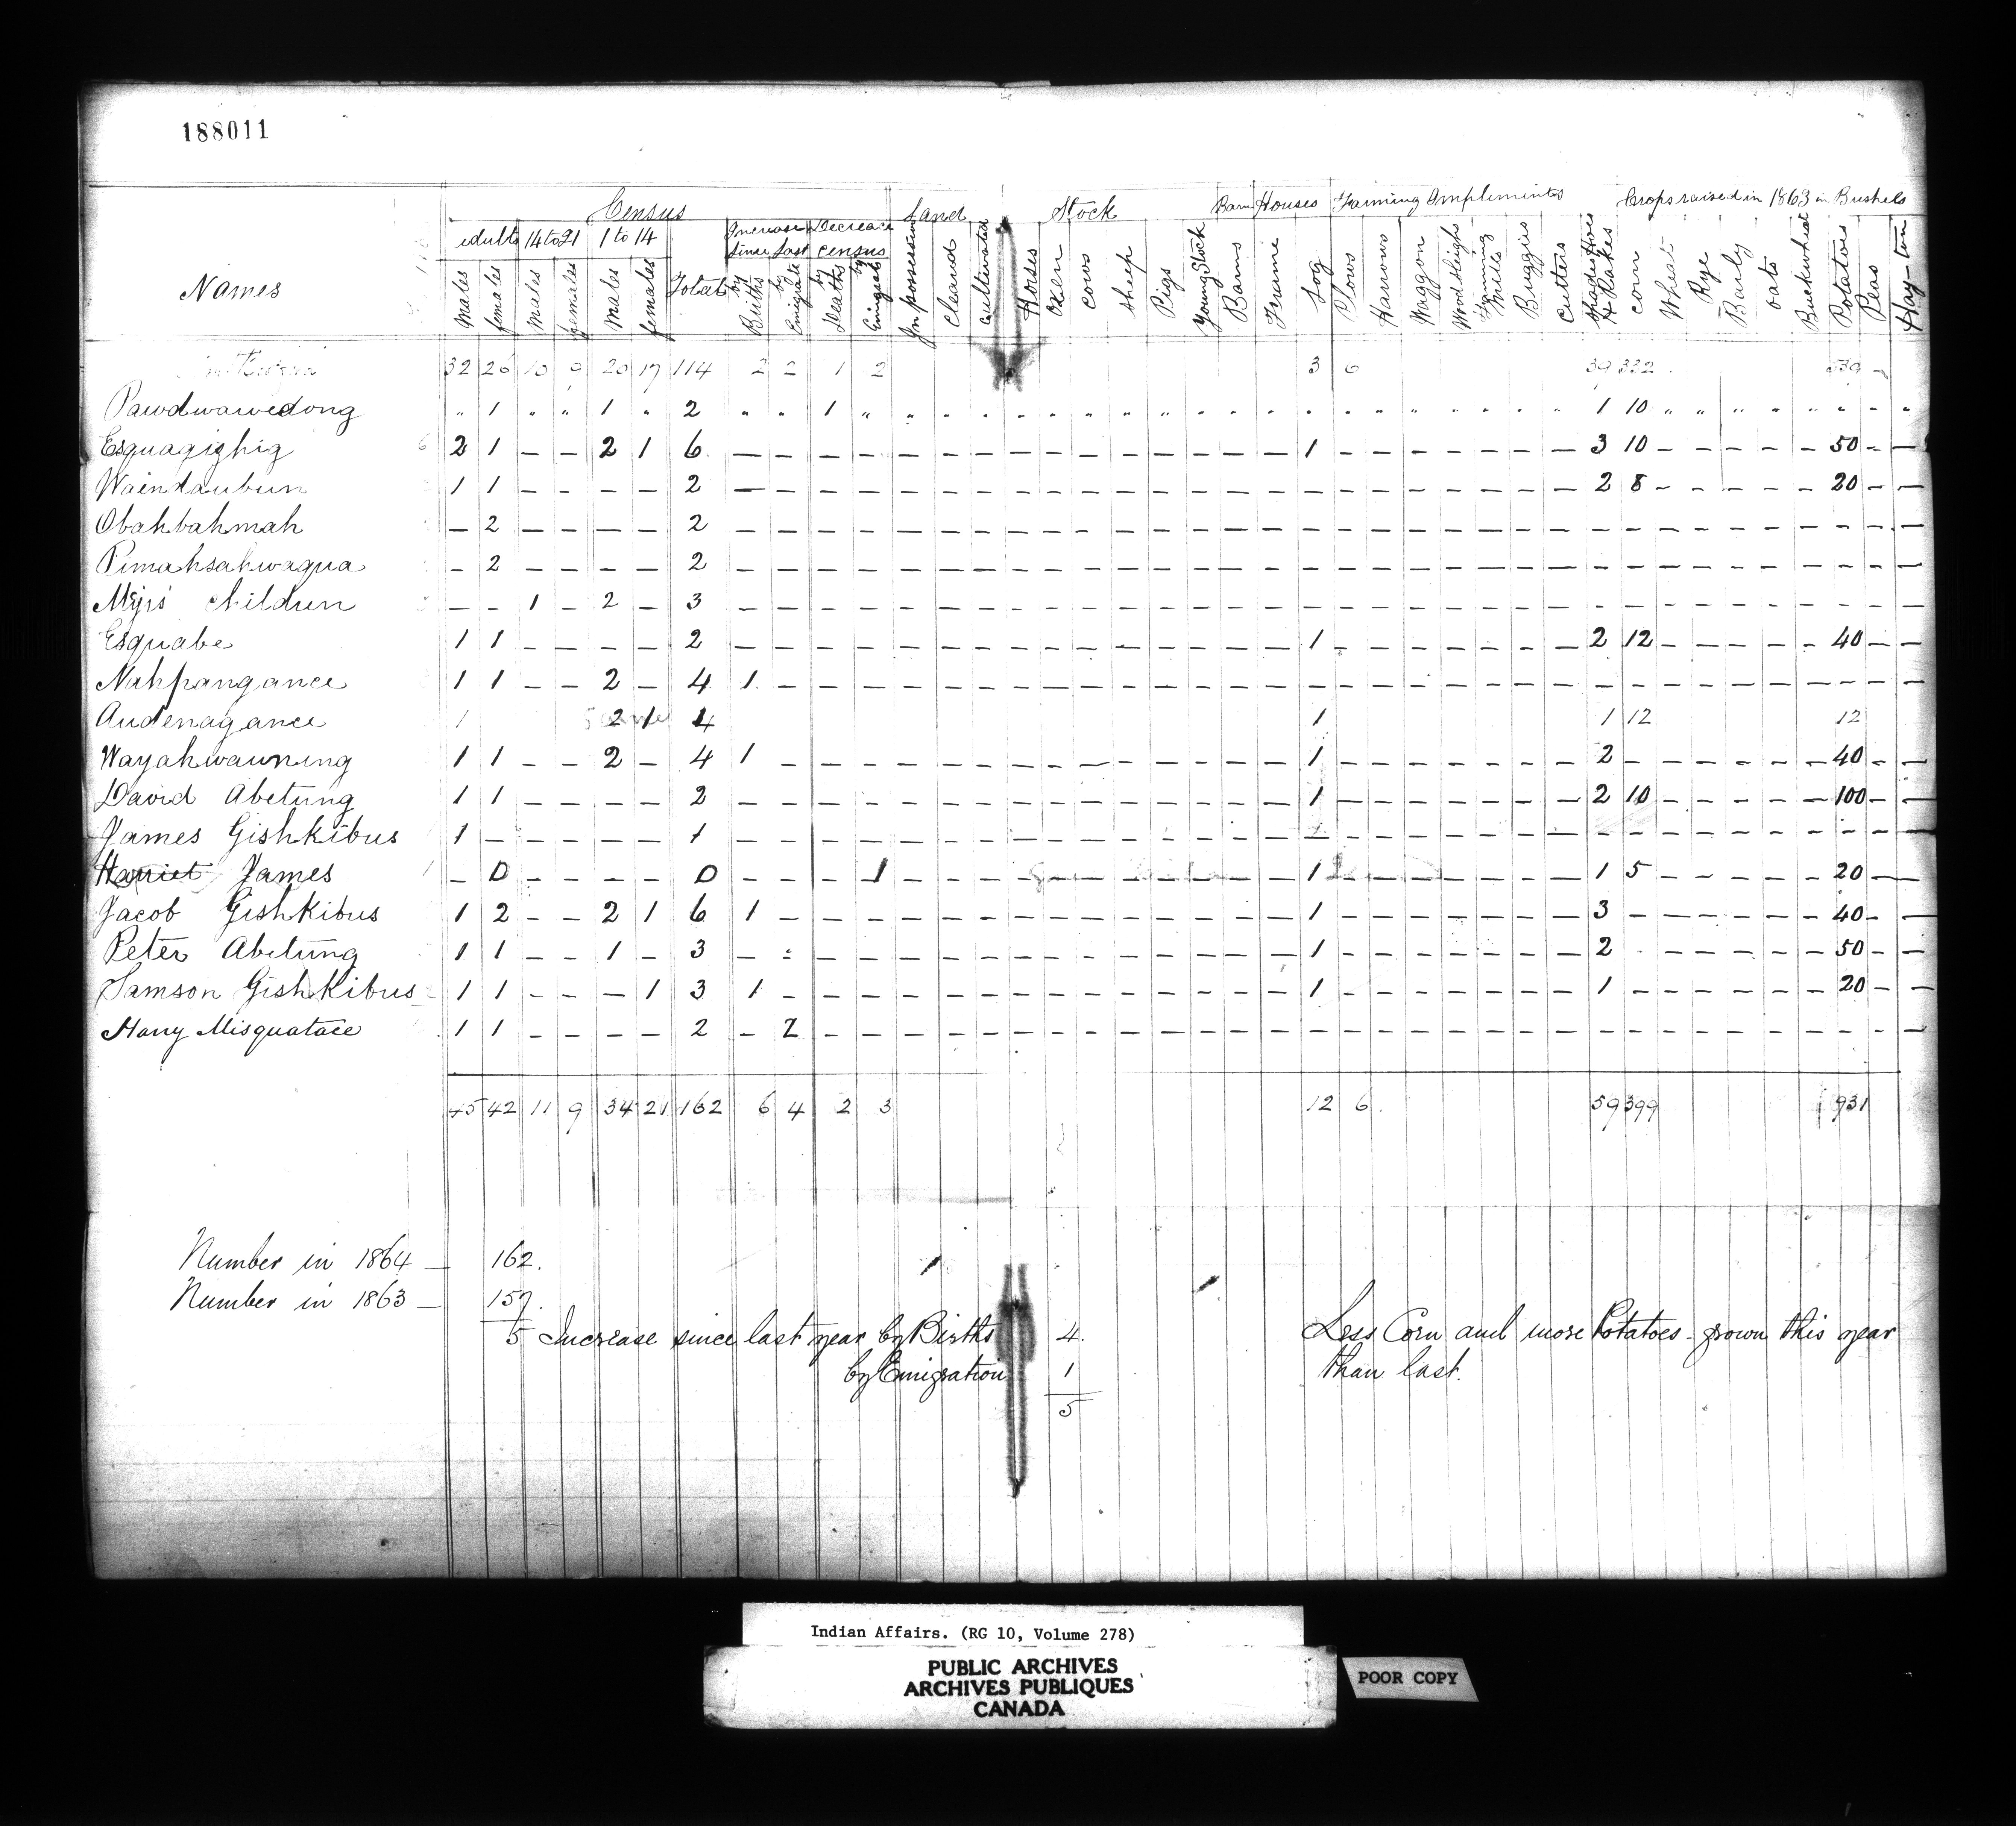 188011
Census Land Stock Barn Houses Farming Implements Crops raised in 1863 in Bushels
adults 14 to 21 1 to 14 Increase since last Decrease census
Names Males females Males females Males females Total by Births by Emigrate by Deaths by Emigrate In possession Cleared Cultivated Horses Oxen Cows Sheep Pigs Young Stock Barns Frame Log Plows Harrows Waggon Wood Sleighs Fanning Mills Buggies Cutters Spades Hoes & Rakes Corn Wheat Rye Barly Oats Buckwheat Potatoes Peas Hay-ton
32 26 10 9 20 17 114 2 2 1 2 3 6 39 332 539 -
Pawdwawedong " 1 " " 1 " 2 " " 1 " 1 10 " " " " " " " "
Esquagighig 2 1 - - 2 1 6 - - - - 1 - 3 10 - - - - - 50 - -
Waindaubun 1 1 - - - - 2 - - - - 2 8 - - - - - 20 - -
Obahbahmah - 2 - - - - 2 - - - -
Pimahsahwaqua - 2 - - - - 2 - - - -
Myrs' children - - 1 - 2 - 3 - - - -
Esquabe 1 1 - - - - 2 - - - - 1 - 2 12 - - - - - 40 - -
Nahpangance 1 1 - - 2 - 4 1 - - -
Audenagance 1 2 1 4 1 1 12 12
Wayahwauning 1 1 - - 2 - 4 1 - - - 1 - 2 - - - - - - 40 - -
David Abetung 1 1 - - - - 2 - - - - 1 - 2 10 - - - - - 100 - -
James Gishkibus 1 - - - - - 1 - - - -
Harriet James - 0 - - - - 0 - - - 1 1 1 5 - - - - - 20 -
Jacob Gishkibus 1 2 - - 2 1 6 1 - - - 1 - 3 - - - - - - 40 - -
Peter Abetung 1 1 - - 1 - 3 - - - - 1 - 2 - - - - - 50 - -
Samson Gishkibus 1 1 - - - 1 3 1 - - - 1 - 1 - - - - - - 20 - -
Harry Misquatace 1 1 - - - - 2 - 2 - -
45 42 11 9 34 21 162 6 4 2 3 12 6 59 399 931
Number in 1864 — 162.
Number in 1863 — 157.
5 Increase since last year by Births 4.
by Emigration 1
5
Less Corn and more Potatoes grown this year
than last.
Indian Affairs. (RG 10, Volume 278)
PUBLIC ARCHIVES
ARCHIVES PUBLIQUES
CANADA
POOR COPY